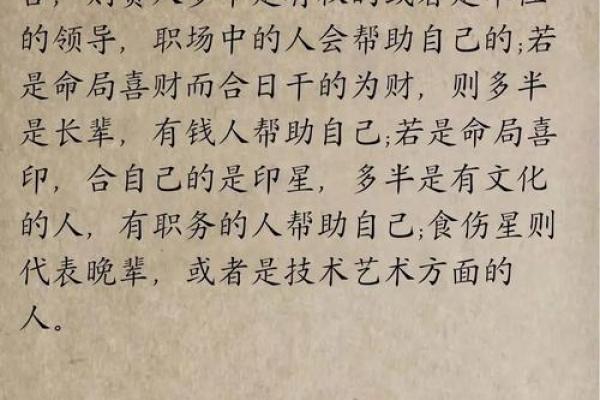 的领导，职场中的人会帮助自己的;若
是命局喜财而合日干的为财，则多半
是长辈，有钱人帮助自己;若是命局喜
印，合自己的是印星，多半是有文化
的人，有职务的人帮助自己;食伤星则
代表晚辈，或者是技术艺术方面的
人。